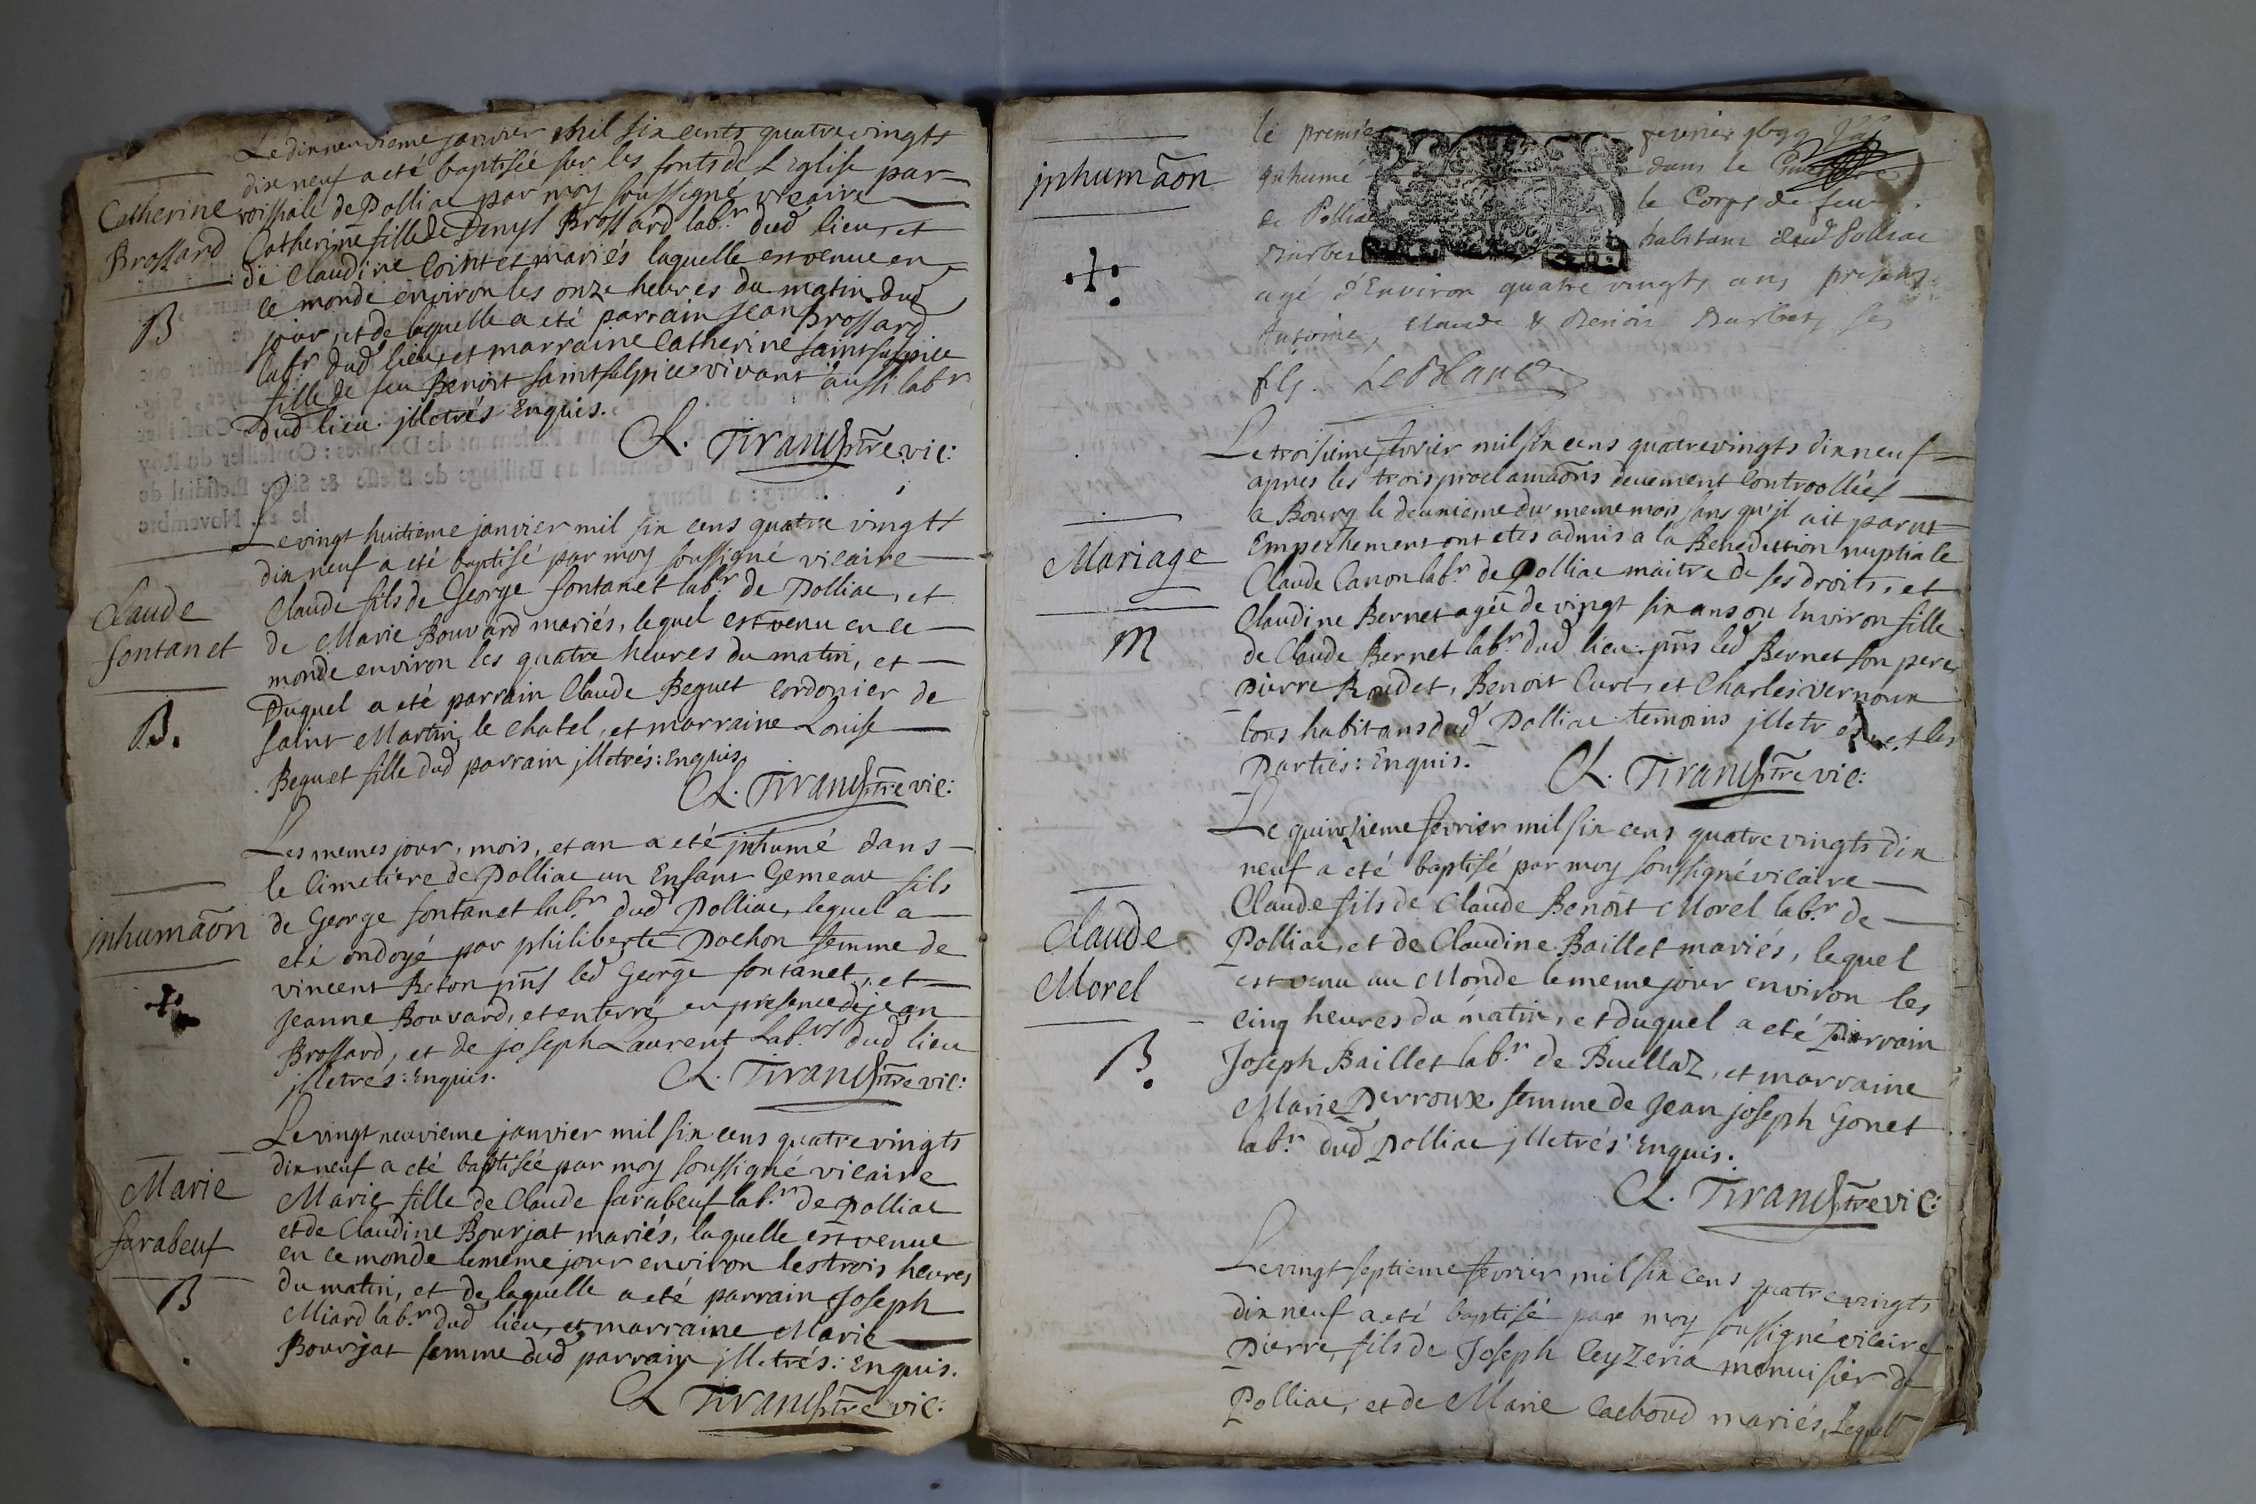 Le dixneuvieme janvier mil six cents quatre vingts
dix neuf a eté baptisée sur les fonts de L'Eglise par-
Catherine
roissiale de Polliac par moy soussigné vicaire
Brossard
Catherine fille de Denys Brossard labr. dud lieu, et
de Claudine Cointet mariés laquelle est venue en
B
ce monde environ les onze heures du matin dud
jour, et de laquelle a eté parrain Jean Brossard
labr. dud lieu, et marraine Catherine saint sulpice
fille de feu Benoit saint sulpice vivant aussi labr
dud lieu jlletrés Enquis.
Cl. Tirand ptre vic:
Le vingt huitieme janvier mil six cens quatre vingts
dix neuf a eté baptisé par moy soussigné vicaire
Claude
fontanet
Claude fils de George fontanet labr. de Polliac, et
de Marie Bouvard mariés, lequel est venu en ce
monde environ les quatre heures du matin, et
B.
Duquel a eté parrain Claude Beguet cordonier de
saint Martin le chatel, et marraine Louise
Beguet fille dud parrain jlletrés: Enquis
Cl. Tirand ptre vic:
Les memes jour, mois, et an a eté jnhumé dans
le Cimetiere de Polliac un Enfant Gemeau fils
jnhumaõn
de George fontanet labr. dud Polliac, lequel a
eté ondoyé par philiberte Pochon femme de
vincent Reton pñs led George fontanet, et
Jeanne Bouvard, et enterré en presence de jean
Brossard, et de joseph Laurent Labrs. dud lieu
jlletrés: Enquis.
Cl. Tirand ptre vic:
Le vingt neuvieme janvier mil six cens quatre vingts
dix neuf a eté baptisée par moy soussigné vicaire
Marie
farabeuf
B
Marie fille de Claude farabeuf labr. de Polliac
et de Claudine Bourjat mariés, laquelle est venue
en ce monde le meme jour environ les trois heures
du matin, et de laquelle a eté parrain Joseph
Miard labr. dud lieu, et marraine Marie
Bourjat femme dud parrain jlletrés: Enquis.
Cl Tirand ptre vic:
jnhumaõn
le premie fevrier 1699
dans le
de Pollia le Corps de feu
habitant dud Polliac
agé d'Environ quatre vingts ans presens
Antoine, Claude & Benoit ses
fils. LeBlanc
Le troisieme fevrier mil six cens quatre vingts dix neuf
apres les trois proclamaõns deuement Controollées
a Bourg le deuxieme du meme mois sans qu'jl ait parut
Mariage
Empechement ont etes admis a la Benediction nuptiale
Claude Canon labr. de Polliac maitre de ses droits, et
M
Claudine Bernet agée de vingt six ans ou Environ fille
de Claude Bernet labr. dud lieu. pñs led Bernet son pere
Pierre Rudet, Benoit Curt, et Charles vernoux
tous habitans dud Polliac temoins jlletrés, et les
Parties: Enquis.
Cl. Tirand ptre vic:
Le quinzieme fevrier mil six cens quatre vingts dix
neuf a eté baptisé par moy soussigné vicaire
Claude
Morel
Claude fils de Claude Benoit Morel labr. de
Polliac, et de Claudine Baillet mariés, lequel
est venu au Monde le meme jour environ les
B.
cinq heures du matin, et duquel a eté Parrain
Joseph Baillet labr. de Buellaz, et marraine
Marie Perroux femme de Jean joseph Gonet
labr. dud Polliac jlletrés Enquis.
Cl. Tirand ptre vic:
Le vingt septieme fevrier mil six cens quatre vingts
dix neuf a eté baptisé par moy soussigné vicaire
Pierre, fils de Joseph CeyZeria menuisier de
Polliac, et de Marie Cachoud mariés, Lequel